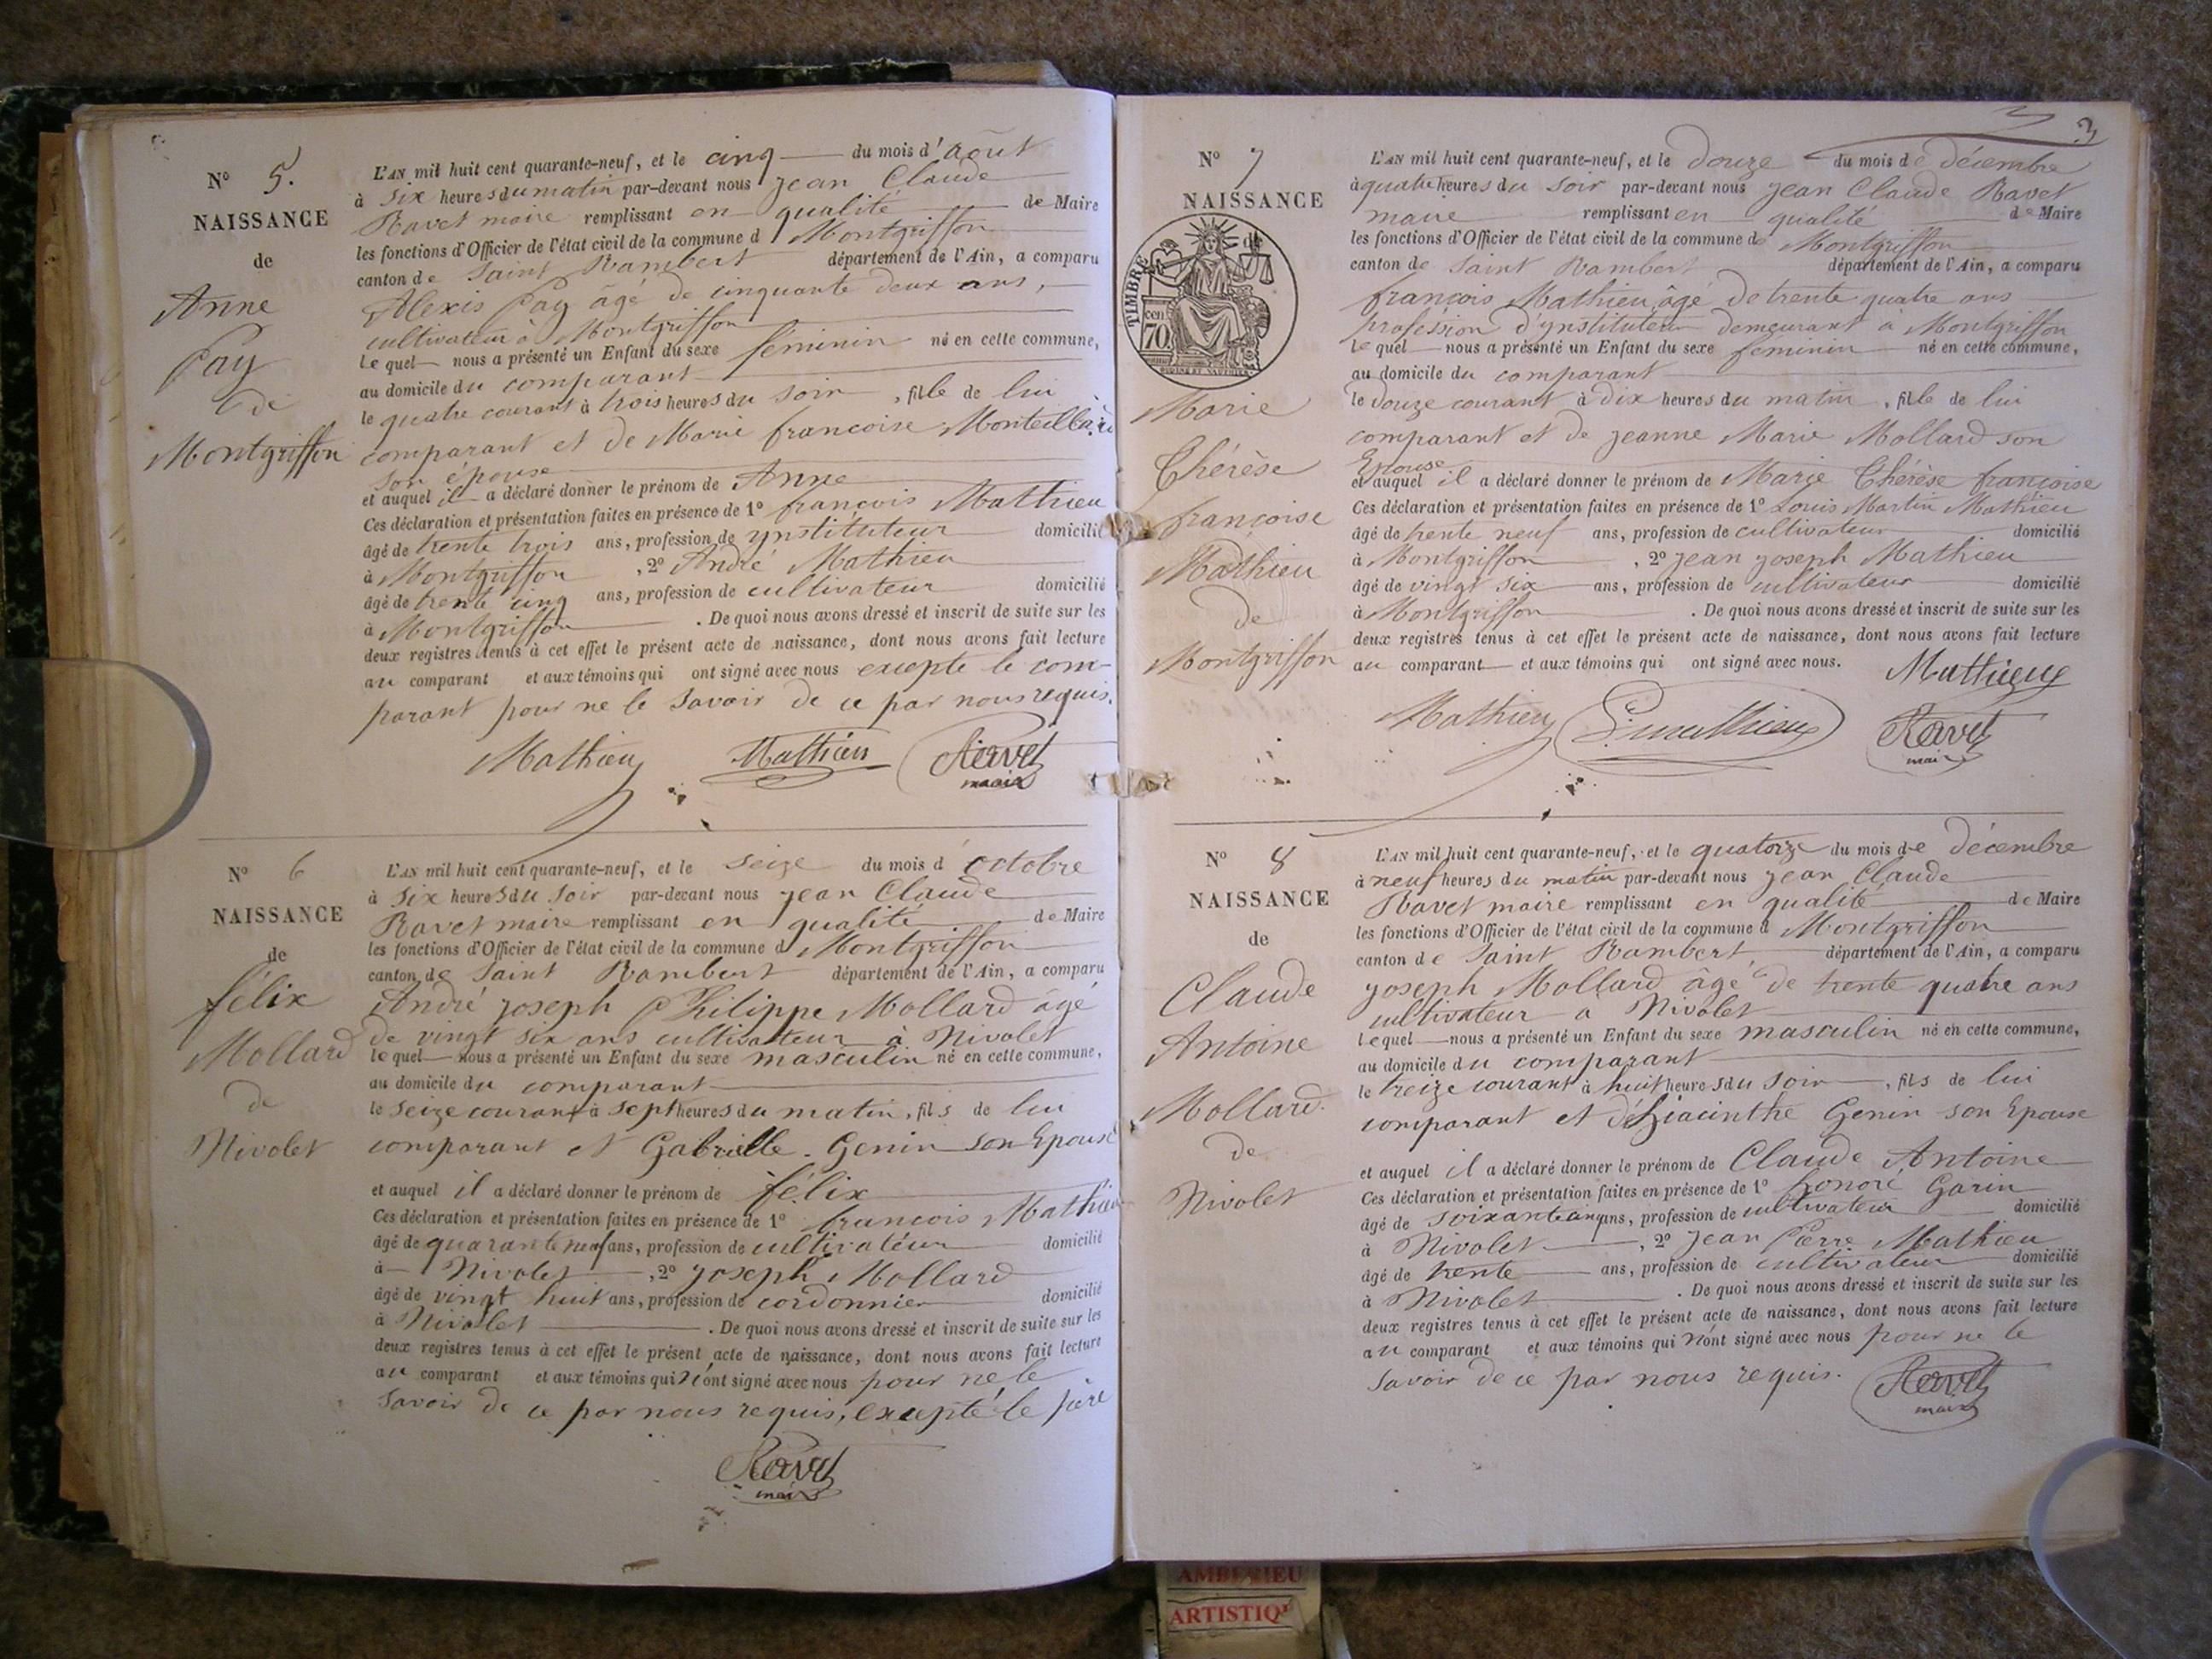 N° 5.
NAISSANCE
de
Anne
Pay
de
Montgriffon
L'AN mil huit cent quarante-neuf, et le cinq du mois d'Août
à six heures du matin par-devant nous jean Claude
Ravet maire remplissant en qualité de Maire
les fonctions d'Officier de l'état civil de la commune d Montgriffon
canton de Saint Rambert département de l'Ain, a comparu
Alexis Pay âgé de cinquante deux ans,
cultivateur à Montgriffon
lequel nous a présenté un Enfant du sexe féminin né en cette commune,
au domicile du comparant
le quatre courant à trois heures du soir, fille de lui
comparant et de Marie francoise
son épouse
et auquel il a déclaré donner le prénom de Anne
Ces déclaration et présentation faites en présence de 1° francois Mathieu
âgé de trente trois ans, profession de ynstituteur domicilié
à Montgriffon, 2° André Mathieu
âgé de trente cinq ans, profession de cultivateur domicilié
à Montgriffon. De quoi nous avons dressé et inscrit de suite sur les
deux registres tenus à cet effet le présent acte de naissance, dont nous avons fait lecture
au comparant et aux témoins qui ont signé avec nous excepte le com-
parant pour ne le savoir de ce par nous requis.
Mathieu Mathieu Ravet
maire
N° 6
NAISSANCE
de
félix
Mollard
de
Nivolet
L'AN mil huit cent quarante-neuf, et le seize du mois d octobre
à six heures du soir par-devant nous jean Claude
Ravet maire remplissant en qualité de Maire
les fonctions d'Officier de l'état civil de la commune d Montgriffon
canton de Saint Rambert département de l'Ain, a comparu
André joseph Philippe Mollard âgé
de vingt six ans cultivateur à Nivolet
lequel nous a présenté un Enfant du sexe masculin né en cette commune,
au domicile du comparant
le seize courant à sept heures du matin, fils de lui
comparant et Gabrielle Genin son Epouse
et auquel il a déclaré donner le prénom de félix
Ces déclaration et présentation faites en présence de 1° francois Mathieu
âgé de quarante neuf ans, profession de cultivateur domicilié
à Nivolet, 2° joseph Mollard
âgé de vingt huit ans, profession de cordonnier domicilié
à Nivolet. De quoi nous avons dressé et inscrit de suite sur les
deux registres tenus à cet effet le présent acte de naissance, dont nous avons fait lecture
au comparant et aux témoins qui n'ont signé avec nous pour ne le
savoir de ce par nous requis, excepté le père
Ravet
maire
3
N° 7
NAISSANCE
TIMBRE
cen.
70
Marie
Thérèse
françoise
Mathieu
de
Montgriffon
L'AN mil huit cent quarante-neuf, et le douze du mois de décembre
à quatre heures du soir par-devant nous jean Claude Ravet
maire remplissant en qualité de Maire
les fonctions d'Officier de l'état civil de la commune de Montgriffon
canton de Saint Rambert département de l'Ain, a comparu
françois Mathieu âgé de trente quatre ans
profession d'ynstituteur demeurant à Montgriffon
lequel nous a présenté un Enfant du sexe feminin né en cette commune,
au domicile du comparant
le douze courant à dix heures du matin, fille de lui
comparant et de jeanne Marie Mollard son
Epouse
et auquel il a déclaré donner le prénom de Marie Thérèse françoise
Ces déclaration et présentation faites en présence de 1° Louis Martin Mathieu
âgé de trente neuf ans, profession de cultivateur domicilié
à Montgriffon, 2° jean joseph Mathieu
âgé de vingt six ans, profession de cultivateur domicilié
à Montgriffon. De quoi nous avons dressé et inscrit de suite sur les
deux registres tenus à cet effet le présent acte de naissance, dont nous avons fait lecture
au comparant et aux témoins qui ont signé avec nous. Mathieu
Mathieu Ravet
maire
N° 8
NAISSANCE
de
Claude
Antoine
Mollard.
de
Nivolet
L'AN mil huit cent quarante-neuf, et le quatorze du mois de décembre
à neuf heures du matin par-devant nous jean Claude
Ravet maire remplissant en qualité de Maire
les fonctions d'Officier de l'état civil de la commune d Montgriffon
canton de Saint Rambert, département de l'Ain, a comparu
joseph Mollard âgé de trente quatre ans
cultivateur a Nivolet
lequel nous a présenté un Enfant du sexe masculin né en cette commune,
au domicile du comparant
le treize courant à huit heures du soir, fils de lui
comparant et d'hiacinthe Genin son Epouse
et auquel il a déclaré donner le prénom de Claude Antoine
Ces déclaration et présentation faites en présence de 1° honoré Garin
âgé de soixante cinq ans, profession de cultivateur domicilié
à Nivolet, 2° jean Pierre Mathieu
âgé de trente ans, profession de cultivateur domicilié
à Nivolet. De quoi nous avons dressé et inscrit de suite sur les
deux registres tenus à cet effet le présent acte de naissance, dont nous avons fait lecture
au comparant et aux témoins qui n'ont signé avec nous pour ne le
savoir de ce par nous requis. Ravet
maire
AMBERIEU
ARTISTIQ